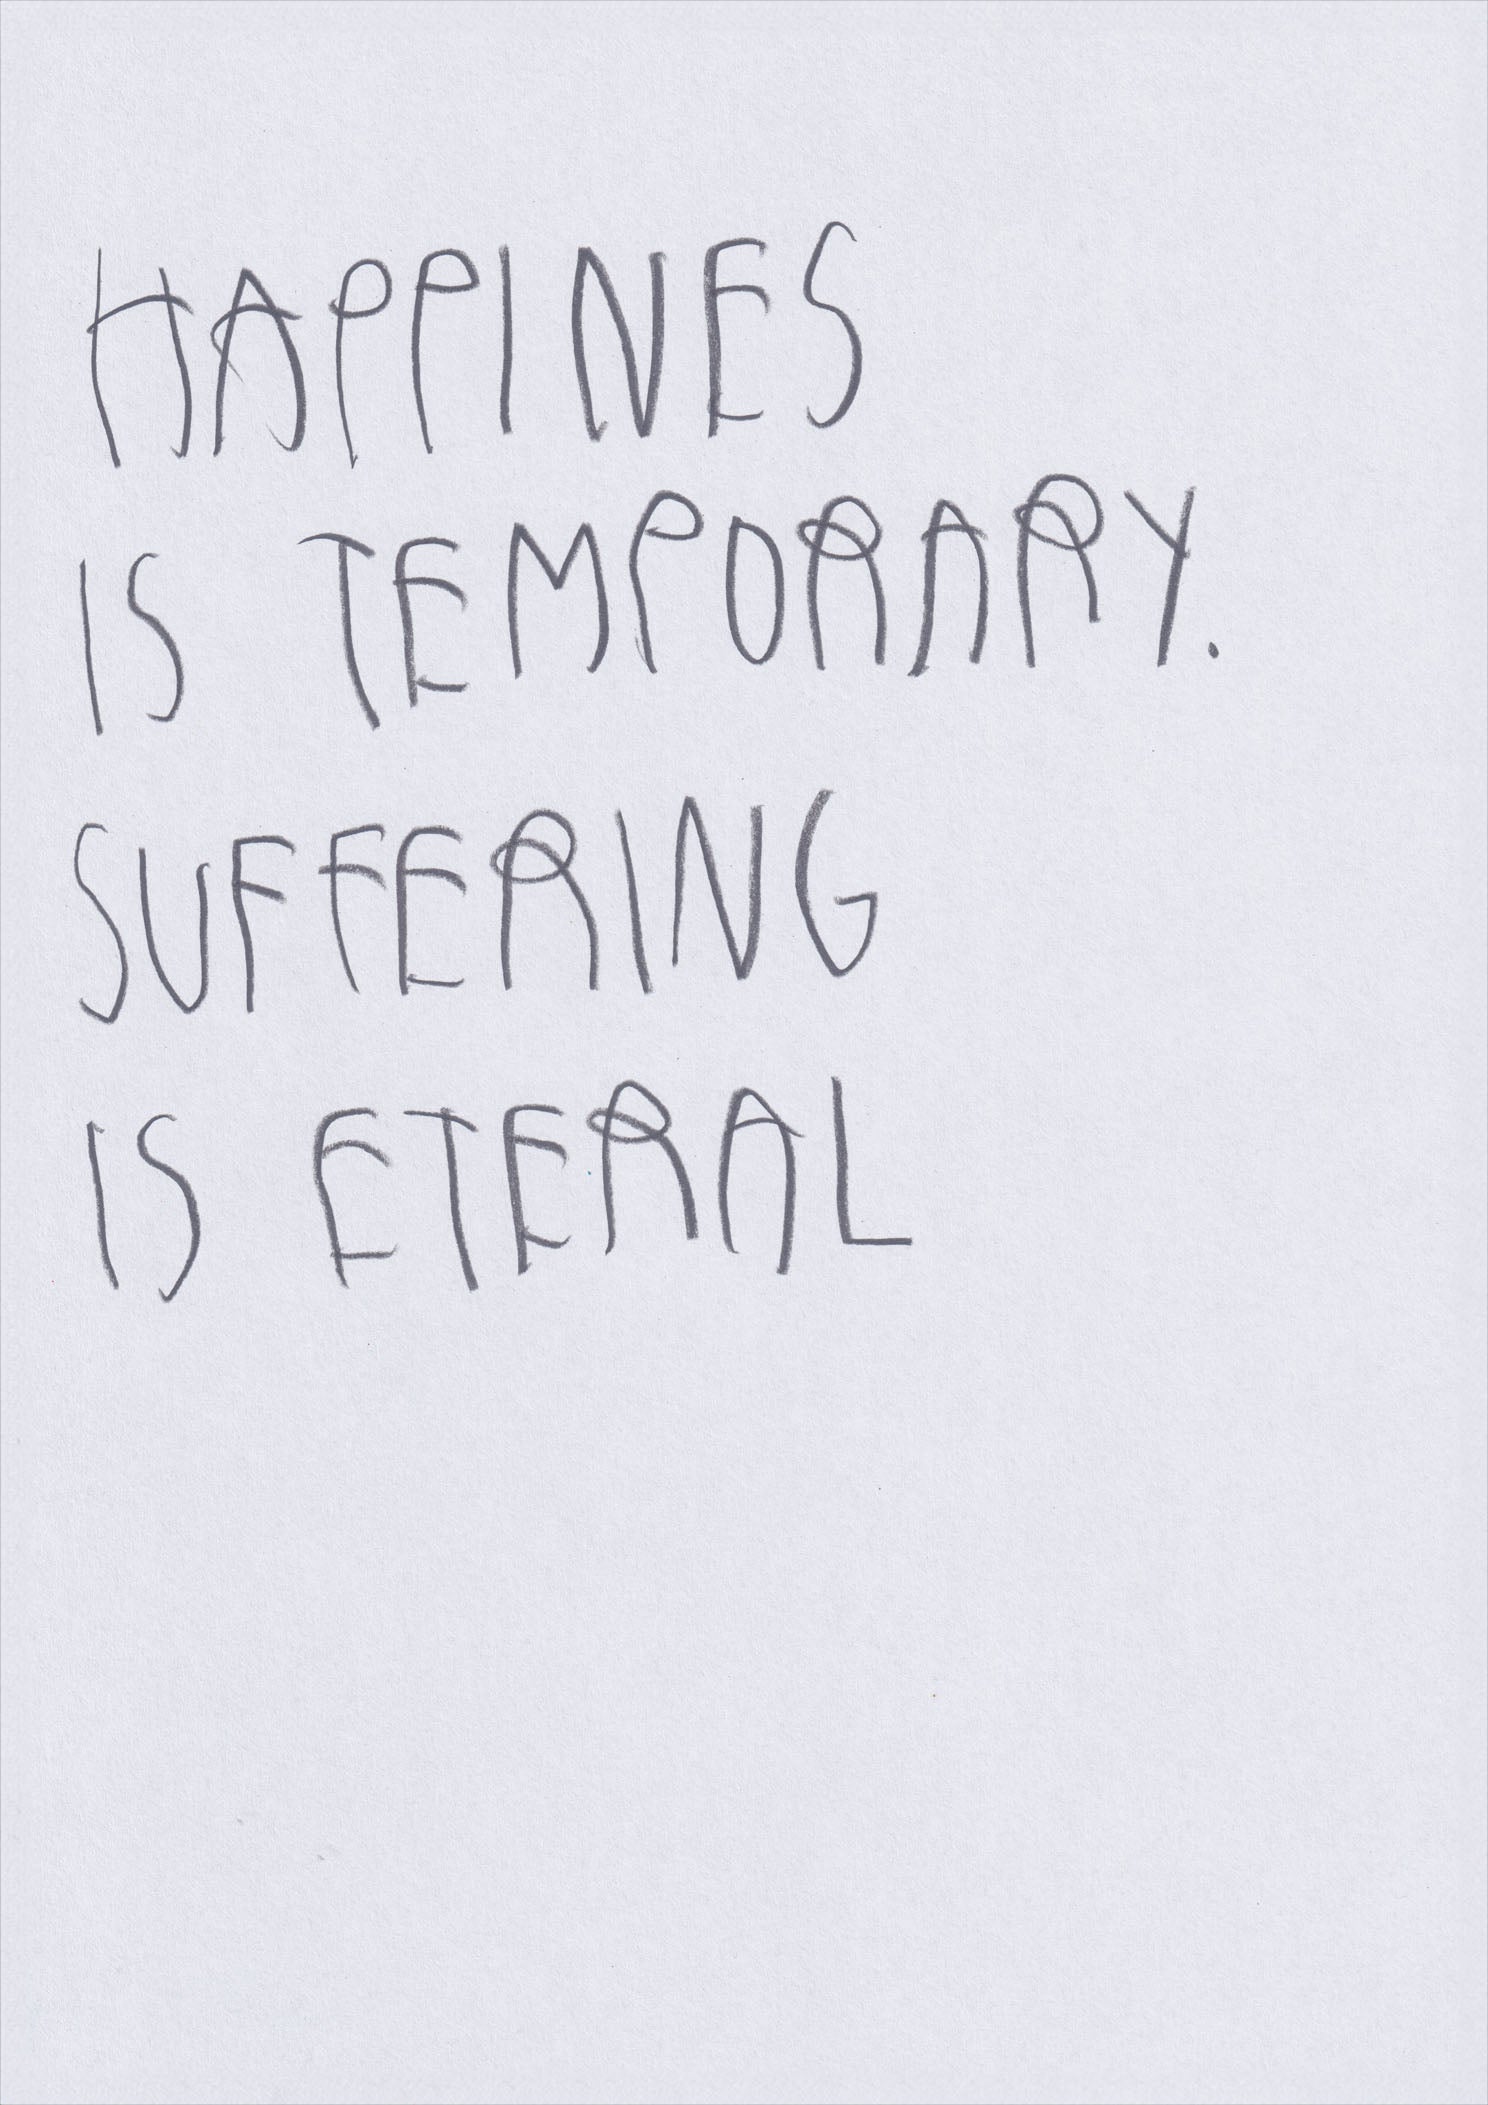 HAPPINES
IS TEMPORARY.
SUFFERING
IS ETERAL